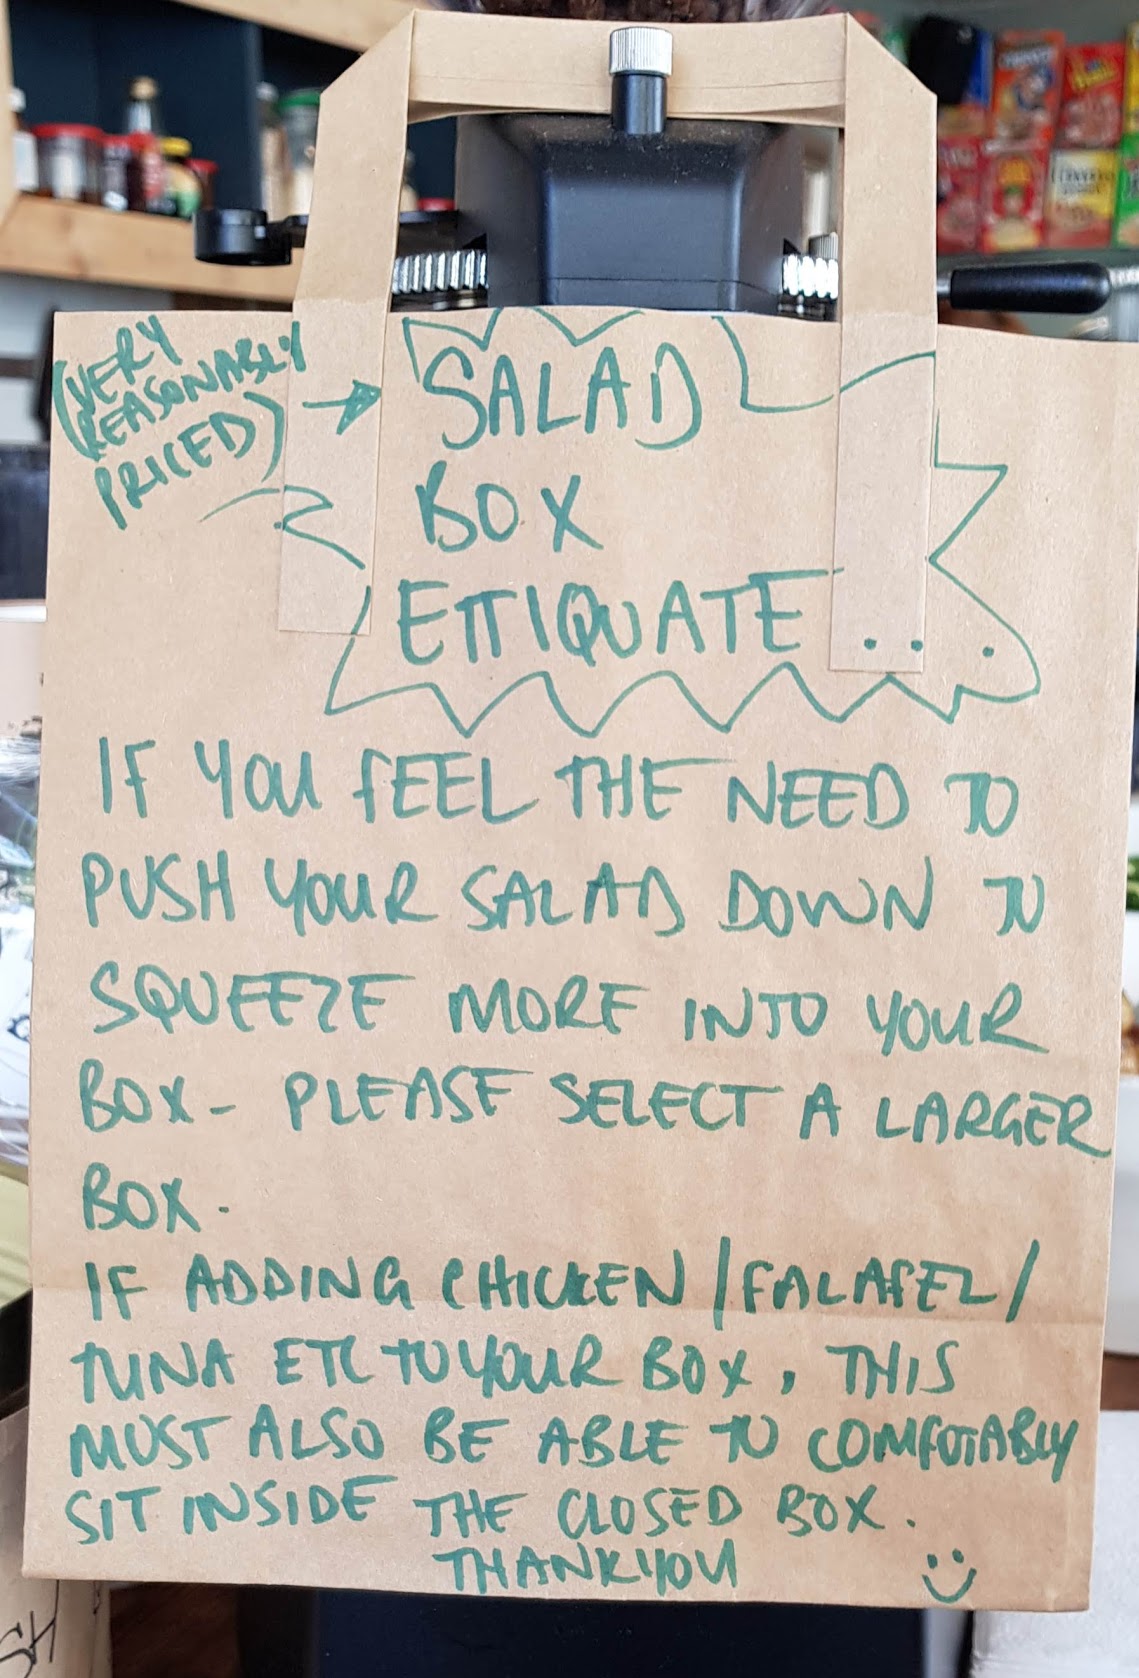 (VERY
REASONABLY
PRICED)
SALAD
BOX
ETTIQUATE...
IF YOU FEEL THE NEED TO
PUSH YOUR SALAD DOWN TO
SQUEEZE MORE INTO YOUR
BOX - PLEASE SELECT A LARGER
BOX.
IF ADDING CHICKEN/FALAFEL/
TUNA ETC TO YOUR BOX, THIS
MUST ALSO BE ABLE TO COMFOTABLY
SIT INSIDE THE CLOSED BOX.
THANKYOU